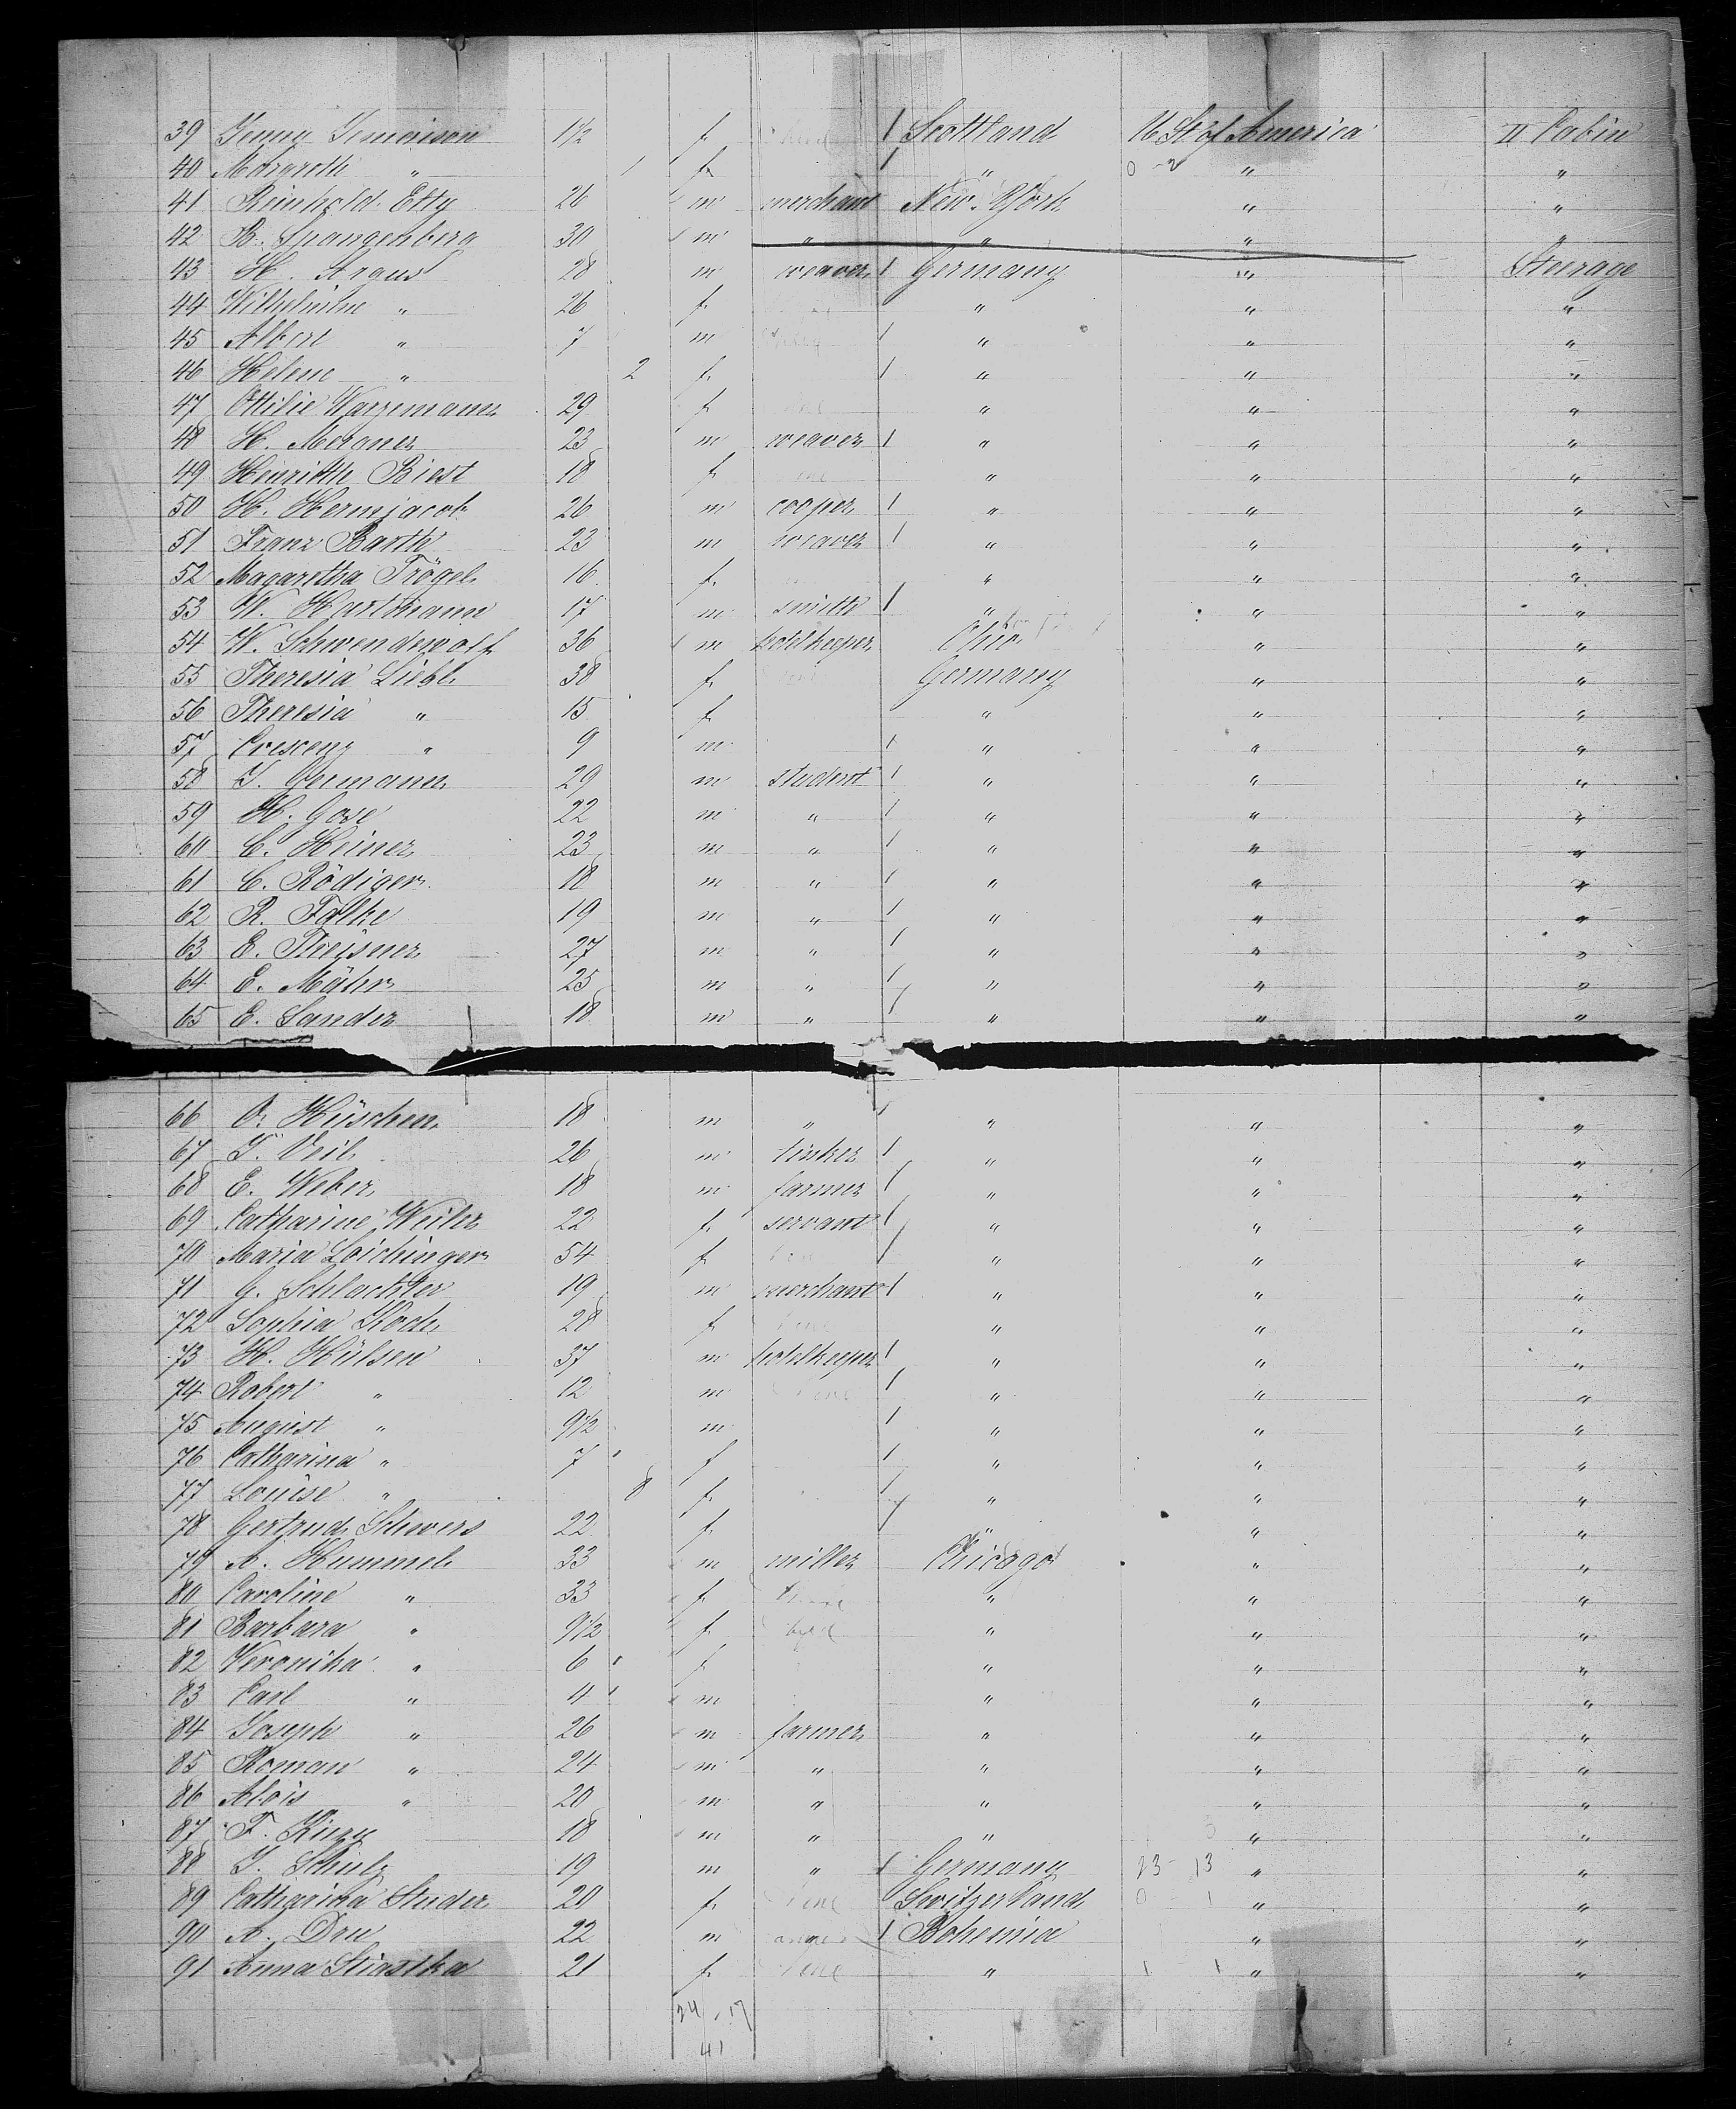 39 Jenny Semerison 1 1/2 f Scottland U St of America II Cabin
40 Margreth " 1 f " 0 - 2 " "
41 Reinhold Etty 26 m merchant New-York " "
42 B. Spangenberg 30 m " " " "
43 H. Argus 28 m weaver Germany " Steerage
44 Wilhelmine " 26 f " " "
45 Albert " 7 m " " "
46 Helene " 2 f " " "
47 Ottilie 29 f " " "
48 H. Mergner 23 m weaver " " "
49 Henritte Biest 18 f " " "
50 H. Hermjacob 26 m cooper " " "
51 Franz Barth 23 m weaver " " "
52 Magaretha Trögel 16 f " " "
53 W. Hartmann 17 m smith " " "
54 W. Schwendewolf 36 m hotelkeeper Ohio " "
55 Theresia Liebl 38 f Germany " "
56 Theresia " 15 f " " "
57 Crescenz " 9 m " " "
58 J. Germann 29 m student " " "
59 H. Gose 22 m " " " "
60 C. Heiner 23 m " " " "
61 C. Rödiger 18 m " " " "
62 R. Falke 19 m " " " "
63 E. Theisner 27 m " " " "
64 E. Mähr 25 m " " " "
65 E. Sander 18 m " " " "
66 O. Hüschen 18 m " " " "
67 J. Veil 26 m tinker " " "
68 E. Weber 18 m farmer " " "
69 Catharine Weiler 22 f servant " " "
70 Maria Loichinger 54 f " " "
71 G. Schlachter 19 m merchant " " "
72 Sophia Koch 28 f " " "
73 H. Hülsen 37 m hotelkeeper " " "
74 Robert " 12 m " " "
75 August " 9 1/2 m " " "
76 Catharina " 7 f " " "
77 Louise " 8 f " " "
78 Gertrud Schwers 22 f " " "
79 A. Hummel 33 m miller Chicago " "
80 Caroline " 33 f " " "
81 Barbara " 9 1/2 f " " "
82 Veronika " 6 f " " "
83 Carl " 4 m " " "
84 Joseph " 26 m farmer " " "
85 Roman " 24 m " " " "
86 Alois " 20 m " " " "
87 F. 18 m " " " "
88 J. Schulz 19 m " Germany 23 - 13 " "
89 Catharina Studer 20 f Switzerland 0 1 " "
90 A. Dru 22 m " Bohemia " "
91 Anna Stiastka 21 f " 1 1 " "
24 , 17
41